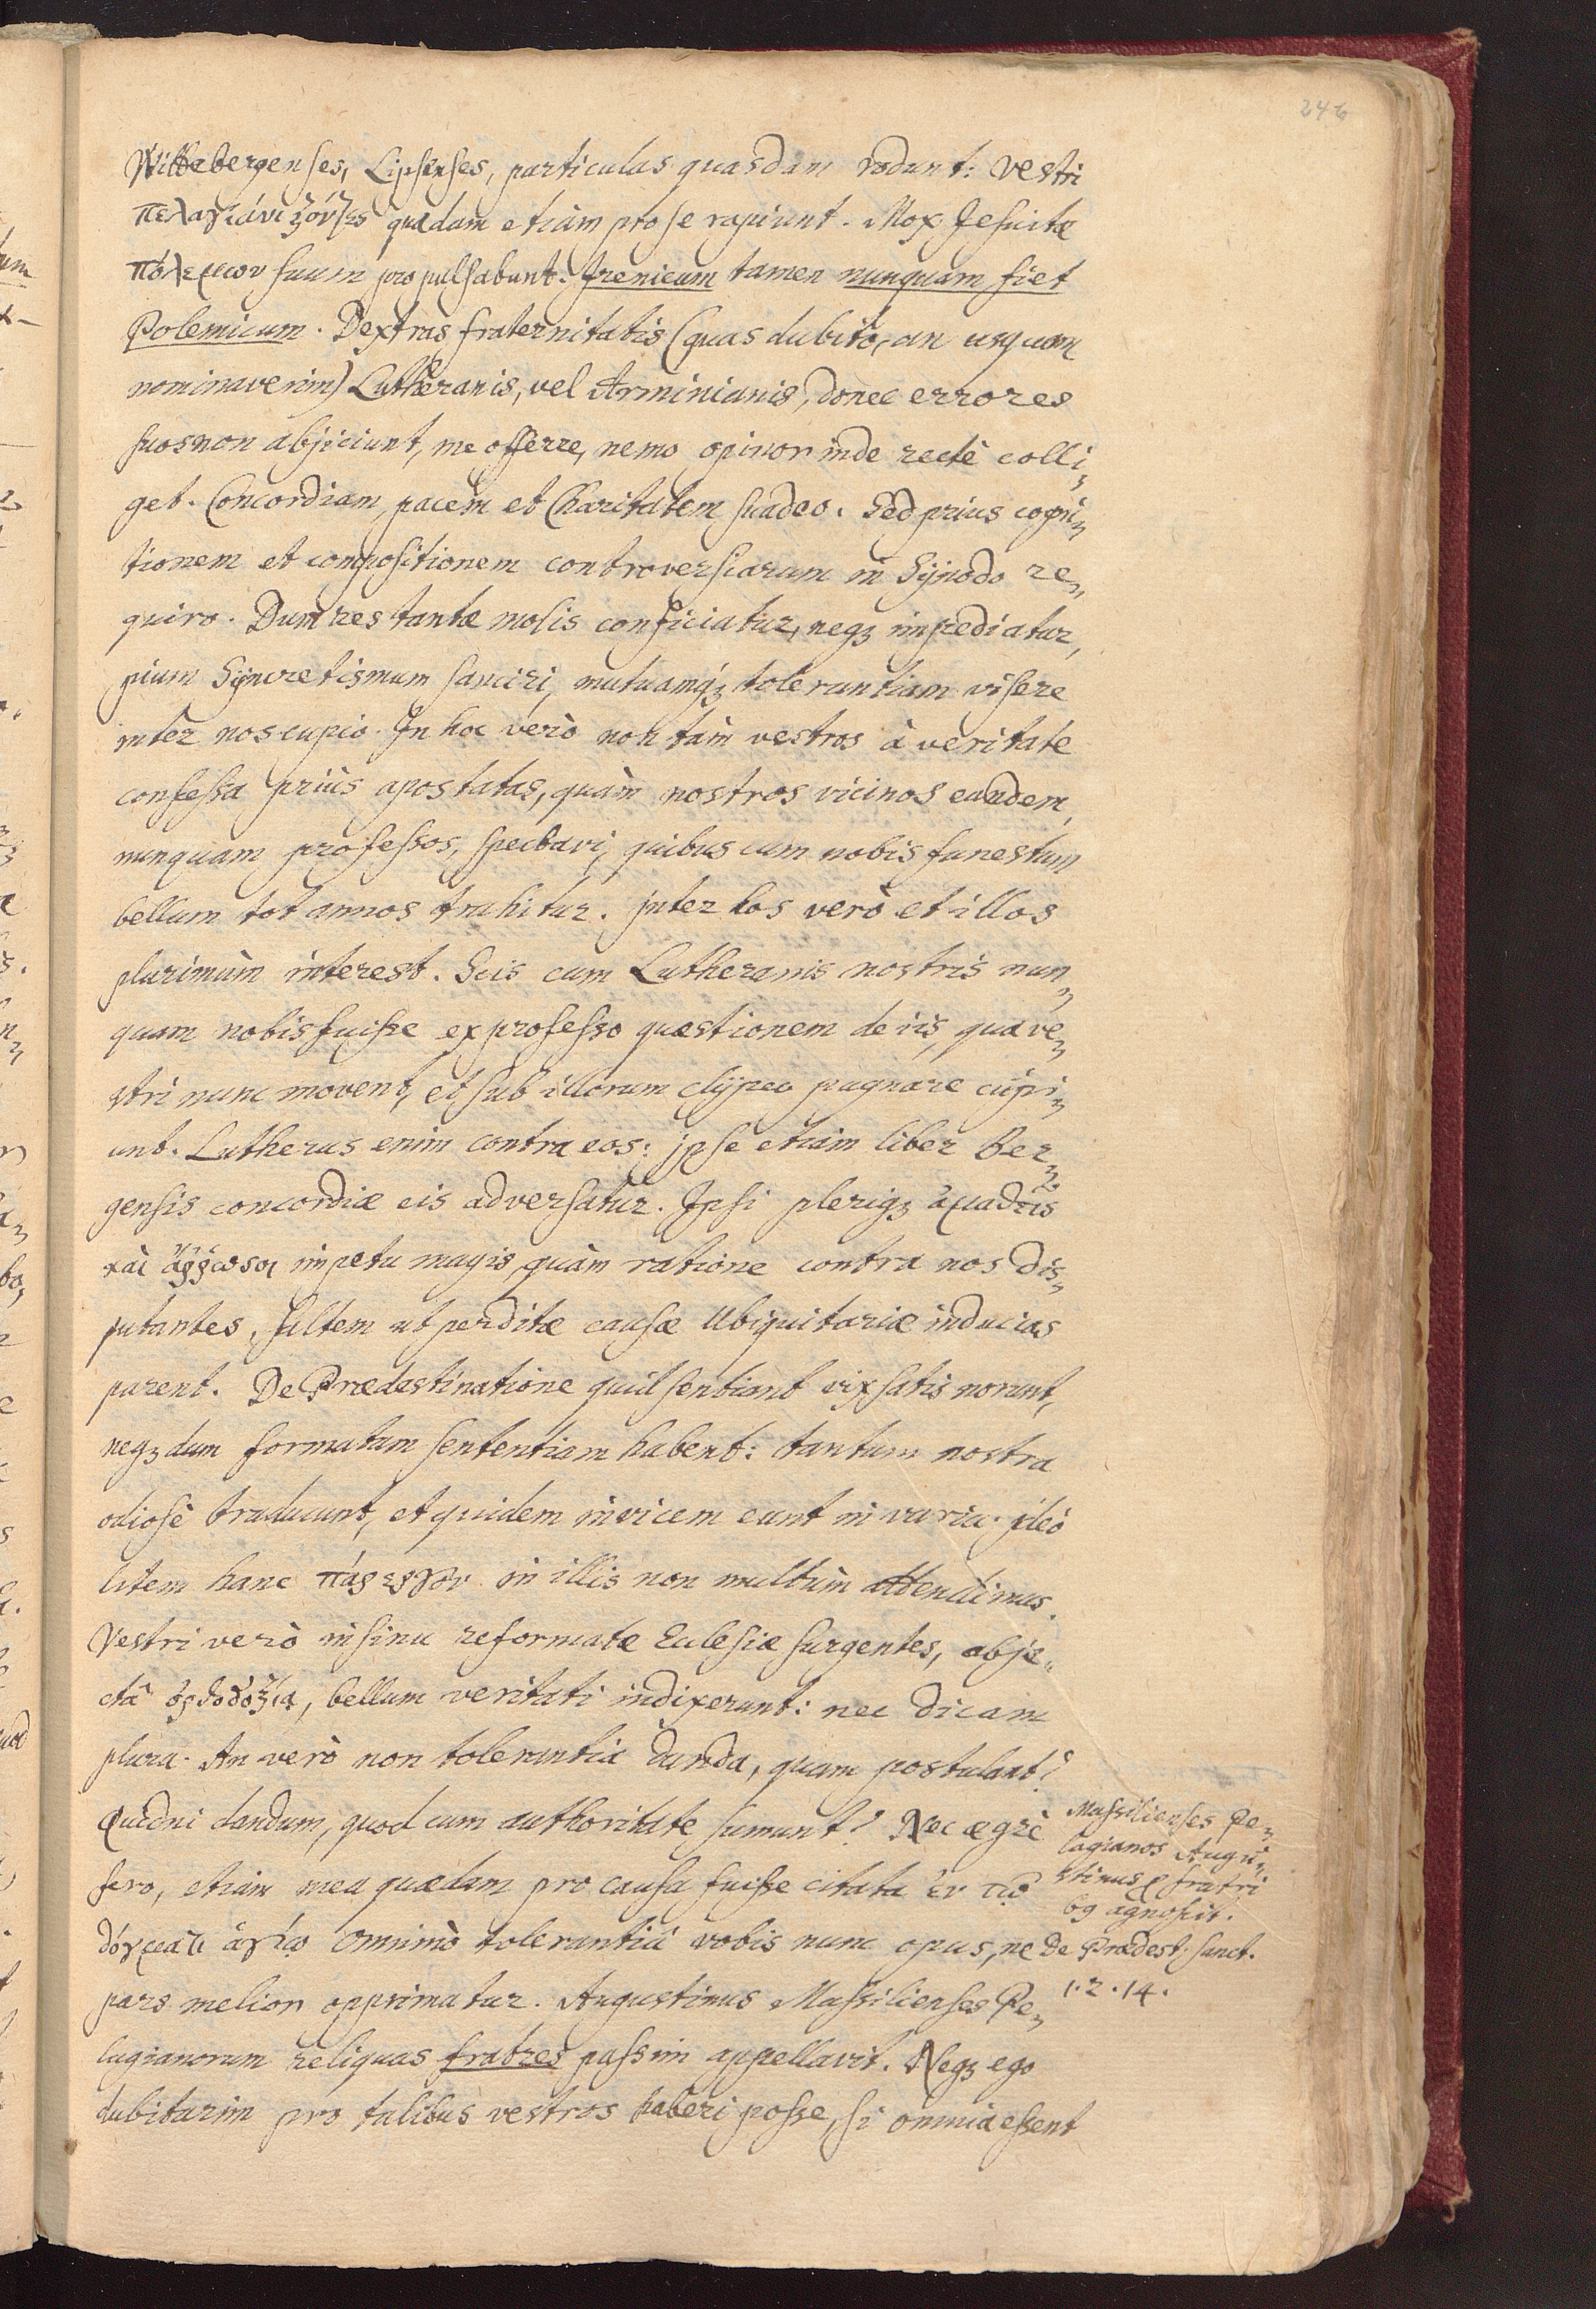 246
Wittebergenses, Lipsenses, particulas quasdam rodunt: Vestri
πελαγιάνιζόντες quædam etiàm pro se rapiunt. Mox Jesuitæ
πόλεμον suum propulsabunt. Irenicum tamen nunquam fiet
Polemicum. Dextras fraternitatis (quas dubito, an usquam
nominaverim) Lutheranis, vel Arminianis, donec errores
suos non abjiciunt, me offerre, nemo opinor inde rectè colli,,
get. Concordiam, pacem et Charitatem suadeo. Sed prius cogni,,
tionem et compositionem controversiarum in Synodo re,,
quiro. Dum res tantæ molis conficiatur, neqз impediatur,
pium Syncretismum sanciri, mutuamqз tolerantiam visere
intèr nos cupio. In hoc verò non tàm vestros à veritate
confessa priùs apostatas, quàm nostros vicinos eandem
nunquam professos, spectavi, quibus cum nobis funestum
bellum tot annos trahitur. Inter hos verò et illos
plurimùm interest. Scis cum Lutheranis nostris nun,,
quam nobis fuisse ex professo quæstionem de iis, quæ ve,,
stri nunc movent, et sub illorum clypeo pugnare cupi,,
unt. Lutherus enim contra eos: ipse etiàm liber Ber,,
gensis concordiæ eis adversatur. Ipsi pleriqз ἀμαθεῖς
καὶ ἄῤῥωσοι impetu magis, quàm ratione contra nos dis,,
putantes, saltem ut perditæ causæ Ubiquitariæ inducias
parent. De Prædestinatione quid sentiant vix satis norunt,
neqз dum formatam sententiam habent: tantum nostra
odiosè traducunt, et quidem invicem eunt in varia. ideò
litem hanc πάρεργον in illis non multùm attendimus.
Vestri verò in sinu reformatæ Ecclesiæ surgentes, abje,,
ctâ ὀρθοδόξίᾳ, bellum veritati indixerunt: nec dicam
plura. An verò non tolerantia danda, quam postulant?
Quidni dandum, quod cum authoritate sumunt? Nec ægrè
fero, etiàm mea quædam pro causa fuisse citata ἐν τῷ
δόγματι ἁγίῳ Omninò tolerantiâ vobis nunc opus, ne
pars melior opprimatur. Augustinus Massilienses Pe,,
lagianorum reliquas fratres passim appellavit. Neqз ego
dubitarim pro talibus vestros haberi posse, si omnia essent
Massilienses Pe,,
lagianos Augu,,
stinus p fratri
bg agnoscit.
de Prædest. sanct.
1. 2. 14.